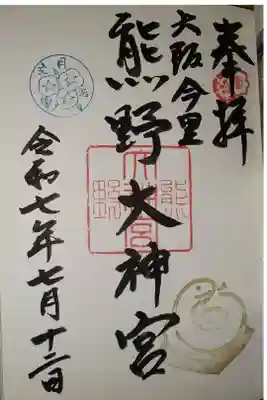 奉拝
大阪今里
熊野大神宮
令和七年七月十二日